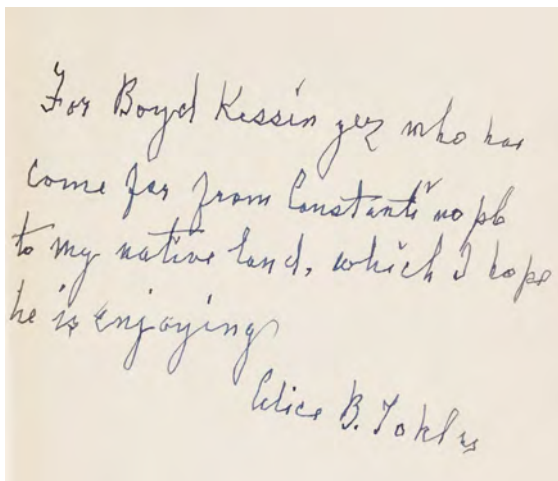 For Boyd Kessinger who has
come far from Constantinople
to my native land, which I hope
he is enjoying
Alice B. Toklas